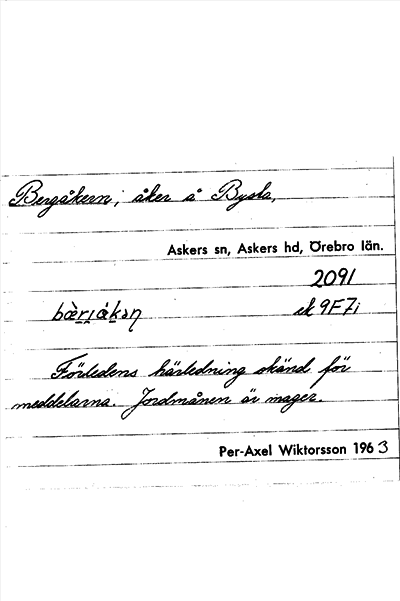 Bergåkern; åker å Bysta,
Askers sn, Askers hd, Örebro län.
2091
bæ̀rjåkən ek 9F7i
Förledens härledning okänd för
meddelarna. Jordmånen är mager.
Per-Axel Wiktorsson 1963